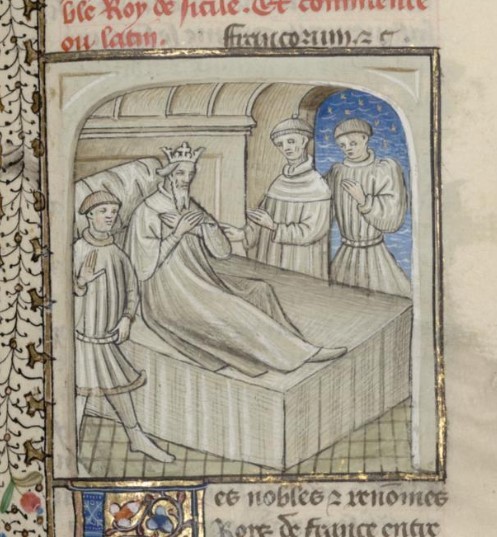 ble Roy de sicile. Et commence
ou latin. francorum. ⁊ c̄
es nobles ⁊ renōmes
Roys de france entre